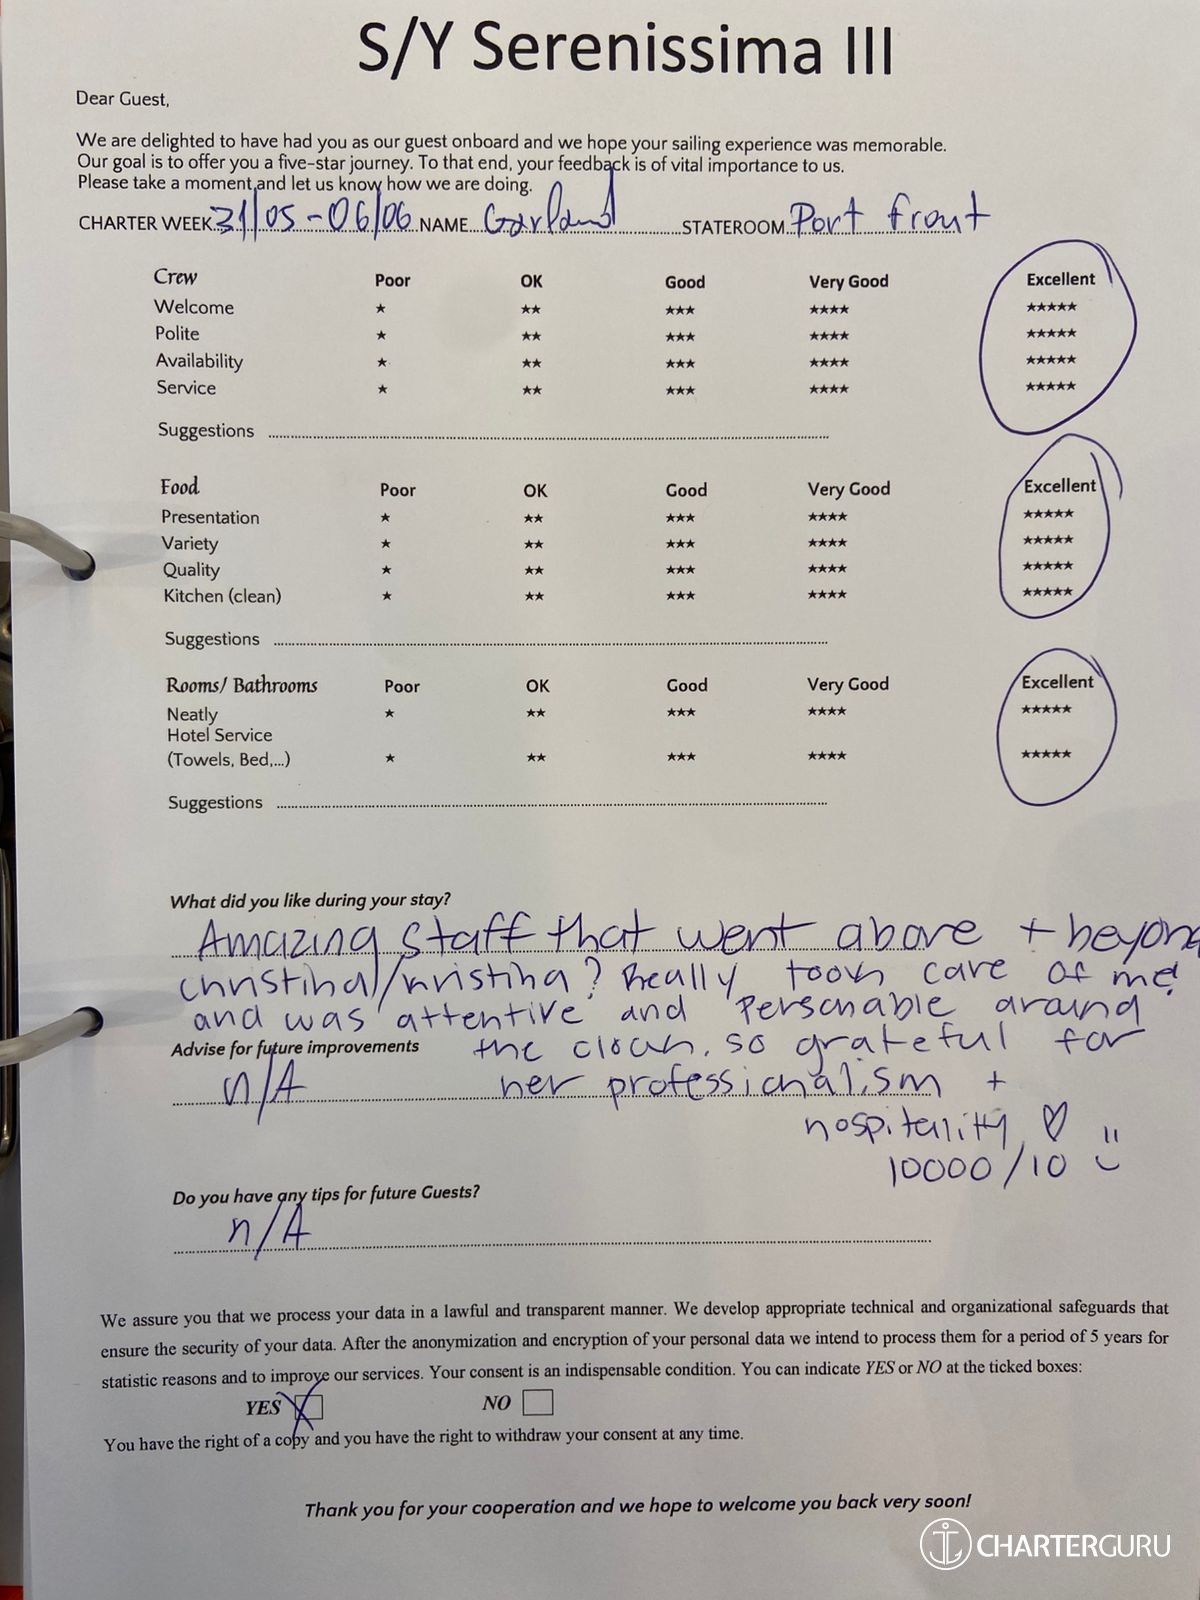 S/Y Serenissima III
Dear Guest,
We are delighted to have had you as our guest onboard and we hope your sailing experience was memorable.
Our goal is to offer you a five-star journey. To that end, your feedback is of vital importance to us.
Please take a moment and let us know how we are doing.
CHARTER WEEK 31/05-06/06 NAME Garland STATEROOM Port front
Crew Poor OK Good Very Good Excellent
Welcome ★ ★★ ★★★ ★★★★ ★★★★★
Polite ★ ★★ ★★★ ★★★★ ★★★★★
Availability ★ ★★ ★★★ ★★★★ ★★★★★
Service ★ ★★ ★★★ ★★★★ ★★★★★
Suggestions
Food Poor OK Good Very Good Excellent
Presentation ★ ★★ ★★★ ★★★★ ★★★★★
Variety ★ ★★ ★★★ ★★★★ ★★★★★
Quality ★ ★★ ★★★ ★★★★ ★★★★★
Kitchen (clean) ★ ★★ ★★★ ★★★★ ★★★★★
Suggestions
Rooms/ Bathrooms Poor OK Good Very Good Excellent
Neatly ★ ★★ ★★★ ★★★★ ★★★★★
Hotel Service
(Towels, Bed,...) ★ ★★ ★★★ ★★★★ ★★★★★
Suggestions
What did you like during your stay?
Amazing staff that went above + beyond
christina/kristina? Really took care of me
and was attentive and personable around
the clock. so grateful for
her professionalism +
hospitality ♡
10000/10
Advise for future improvements
n/A
Do you have any tips for future Guests?
n/A
We assure you that we process your data in a lawful and transparent manner. We develop appropriate technical and organizational safeguards that
ensure the security of your data. After the anonymization and encryption of your personal data we intend to process them for a period of 5 years for
statistic reasons and to improve our services. Your consent is an indispensable condition. You can indicate YES or NO at the ticked boxes:
YES X NO
You have the right of a copy and you have the right to withdraw your consent at any time.
Thank you for your cooperation and we hope to welcome you back very soon!
CHARTERGURU